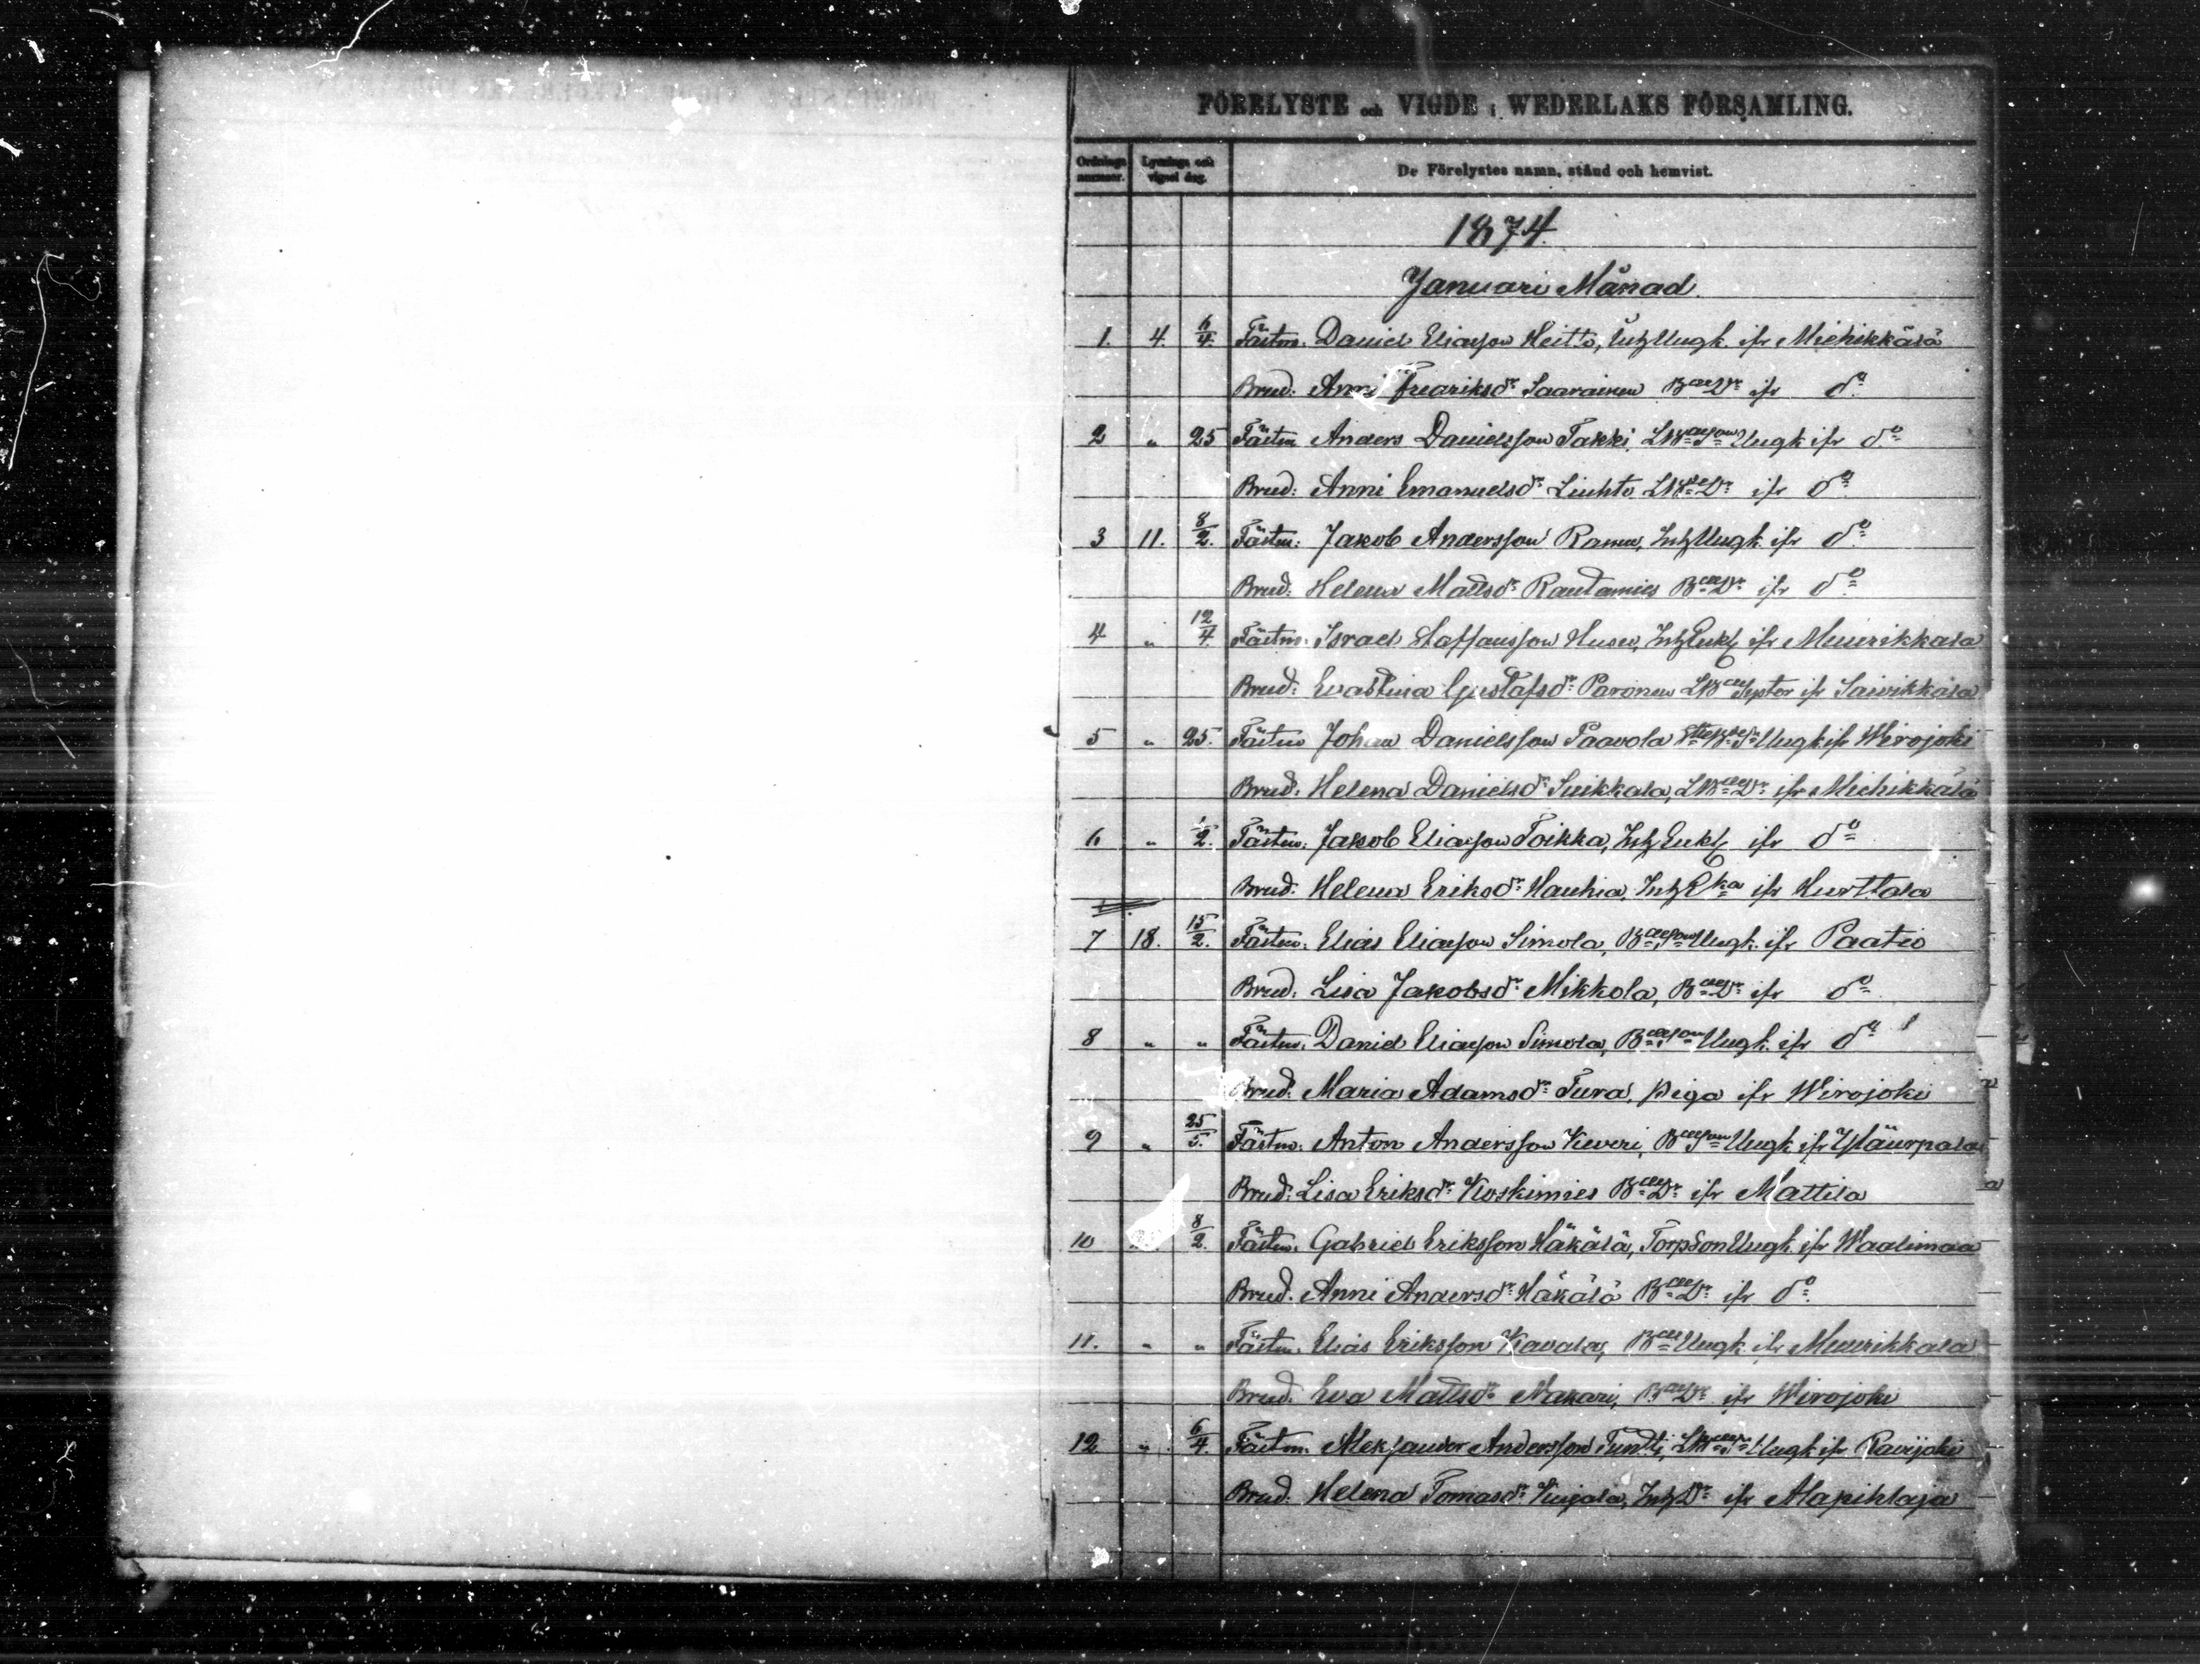 FÖRELYSTE och VIGDE i WEDERLAKS FÖRSAMLING.
Ordnings nummer. Lysnings och vigsel dag. De Förelystes namn, stånd och hemvist.
1874.
Januari Månad.
1. 4. 6/4. Fästm. Daniel Eliasson Heitto, Inh Ungk. ifr Miehikkälä
Brud: Anni Fredriksdr Saarainen Bde Dr ifr do
2 " 25 Fästm Anders Danielsson Takki, Ungk ifr do
Brud: Anni Emanuelsdr Liuhto Dr ifr do
3 11. 8/2. Fästm: Jakob Andersson Ungk. ifr do
Brud: Helena Mattsdr Rautamies Dr ifr do
4 " 12/4. Fästm. Israel Staffansson Husu, Inh Enkl ifr Muurikkala
Brud: Evastina Gustafsdr Paronen Syster ifr Saivikkala
5 " 25. Fästm Johan Danielsson Paavola Ungk ifr Wirojoki
Brud: Helena Danielsdr Suikkala, Dr ifr Miehikkälä
6 " 1/2. Fästm: Jakob Eliasson Toikka, Inh Enkl ifr do
Brud. Helena Eriksdr Hauhia, Inh Eka ifr Hurttala
7 18. 15/2. Fästm: Elias Eliasson Simola, Ungk. ifr Paatio
Brud: Lisa Jakobsdr Mikkola, Dr ifr do
8 " " Fästm. Daniel Eliasson Simola, Ungk. ifr do
Brud: Maria Adamsdr Tura, Piga ifr Wirojoki
9 " 25/5. Fästm: Anton Andersson Kiveri, Ungk ifr Yläurpala
Brud: Lisa Eriksdr Koskimies Dr ifr Mattila
10 8/2. Fästm. Gabriel Eriksson Häkälä, TorpSon Ungk ifr Waalimaa
Brud. Anni Andersdr Häkälä Dr ifr do
11. " " Fästm. Elias Eriksson Kavala, Ungk ifr Muurikkala
Brud. Eva Mattsdr Nakari, Dr ifr Wirojoki
12 " 6/4. Fästm. Aleksander Andersson Tuntti, Ungk ifr Ravijoki
Brud. Helena Tomasdr Kujala, Inh Dr ifr Alapihlaja